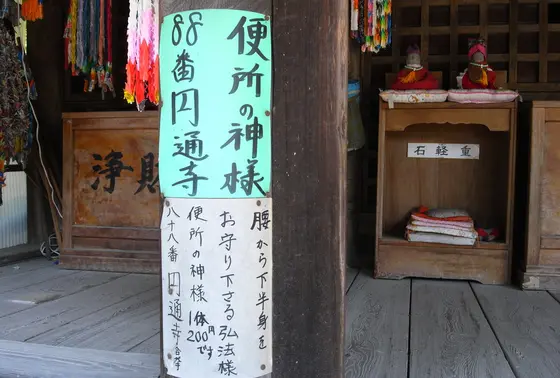 便所の神様
88番円通寺
腰から下半身を
お守り下さる弘法様
便所の神様 1体200円です
八十八番 円通寺合掌
浄財
重軽石